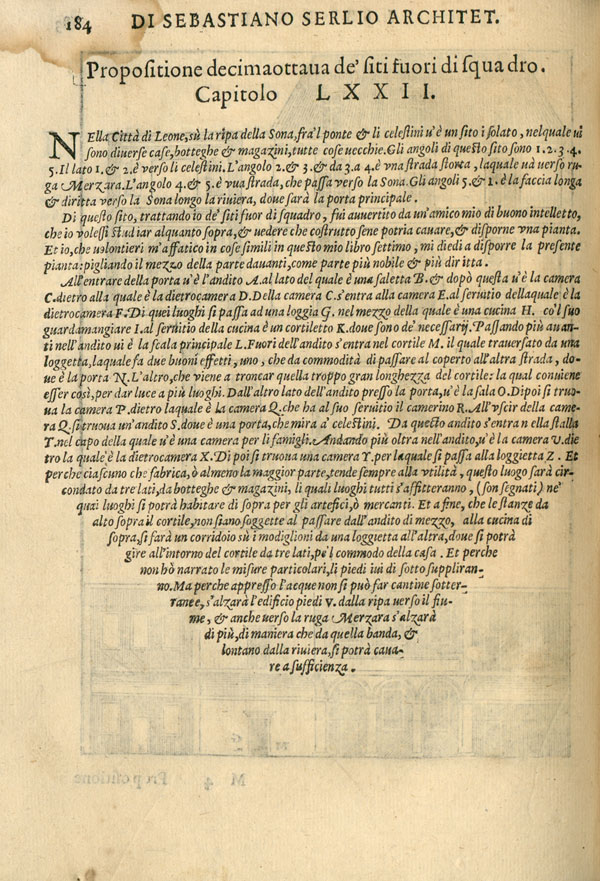 184 DI SEBASTIANO SERLIO ARCHITET.
Propositione decimaottaua de' siti fuori di squadro.
Capitolo LXXII.
NElla Città di Leone, sù la ripa della Sona, fra'l ponte & li celestini u'è un sito isolato, nel quale ui
sono diuerse case, botteghe & magazini, tutte cose uecchie. Gli angoli di questo sito sono 1. 2. 3. 4.
5. Il lato 1. & 2. è verso li celestini. L'angolo 2. & 3. & da 3. a 4. è vna strada storta, laquale uà uerso ru-
ga Merzara. L'angolo 4. & 5. è vua strada, che passa verso la Sona. Gli angoli 5. & 1. è la faccia longa
& diritta verso la Sona longo la riuiera, doue sarà la porta principale.
Di questo sito, trattando io de' siti fuor di squadro, fui auuertito da un'amico mio di buono intelletto,
che io volessi studiar alquanto sopra, & uedere che costrutto se ne potria cauare, & disporne vna pianta.
Et io, che uolontieri m'affatico in cose simili in questo mio libro settimo, mi diedi a disporre la presente
pianta: pigliando il mezzo della parte dauanti, come parte più nobile & più diritta.
All'entrare della porta u'è l'andito A. al lato del quale è una saletta B. & dopò questa u'è la camera
C. dietro alla quale è la dietrocamera D. Della camera C. s'entra alla camera E. al seruitio dellaquale è la
dietrocamera F. Di quei luoghi si passa ad una loggia G. nel mezzo della quale è una cucina H. co'l suo
guardamangiare I. al seruitio della cucina è un cortiletto K. doue son de' necessarij. Passando più auan-
ti nell'andito ui è la scala principale L. Fuori dell'andito s'entra nel cortile M. il quale trauersato da una
loggetta, laquale fa due buoni effetti, uno, che da commodità di passare al coperto all'altra strada, do-
ue è la porta N. L'altro, che viene a troncar quella troppo gran longhezza del cortile: la qual conuiene
esser così, per dar luce a più luoghi. Dall'altro lato dell'andito presso la porta, u'è la sala O. Di poi si truo-
ua la camera P. dietro laquale è la camera Q. che ha al suo seruitio il camerino R. All'vscir della came-
ra Q. si troua un'andito S. doue è una porta, che mira a' celestini. Da questo andito s'entra nella stalla
T. nel capo della quale u'è una camera per li famigli. Andando più oltra nell'andito, u'è la camera V. die
tro la quale è la dietrocamera X. Di poi si truoua una camera Y. per laquale si passa alla loggietta Z. Et
perche ciascuno che fabrica, ò almeno la maggior parte, tende sempre alla vtilità, questo luogo sarà cir-
condato da tre lati, da botteghe & magazini, li quali luoghi tutti s'affitteranno, (son segnati) ne'
quai luoghi si potrà habitare di sopra per gli artefici, ò mercanti. Et a fine, che le stanze da
alto sopra il cortile, non siano soggette al passare dall'andito di mezzo, alla cucina di
sopra, si farà un corridoio sù i modiglioni da una loggietta all'altra, doue si potrà
gire all'intorno del cortile da tre lati, pe'l commodo della casa. Et perche
non hò narrato le misure particolari, li piedi iui di sotto suppliran-
no. Ma perche appresso l'acque non si può far cantine sotter-
ranee, s'alzarà l'edificio piedi v. dalla ripa verso il fiu-
me, & anche uerso la ruga Merzara s'alzarà
di più, di maniera che da quella banda, &
lontano dalla riuiera, si potrà caua-
re a sufficienza.
M 4 Propositione